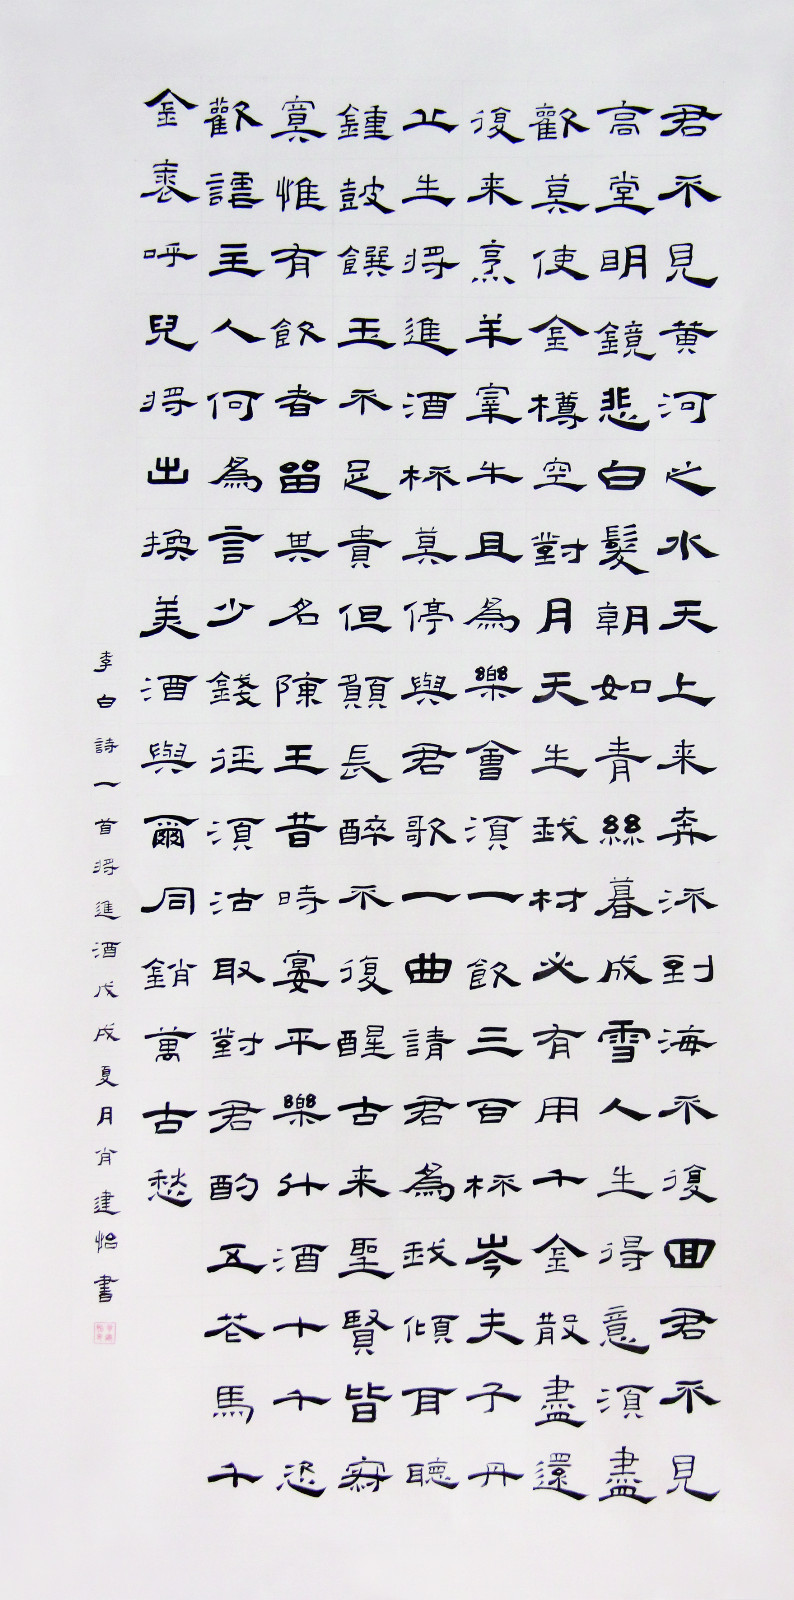 君不見黄河之水天上来奔流到海不復回君不見
高堂明鏡悲白髮朝如青絲暮成雪人生得意須盡
歡莫使金樽空對月天生我材必有用千金散盡還
復来烹羊宰牛且為樂會須一飲三百杯岑夫子丹
丘生將進酒杯莫停與君歌一曲請君為我傾耳聽
鍾鼓饌玉不足貴但願長醉不復醒古来聖賢皆寂
寞惟有飲者留其名陳王昔時宴平樂斗酒十千恣
歡謔主人何為言少錢徑須沽取對君酌五花馬千
金裘呼兒將出換美酒與爾同銷萬古愁
李白詩一首將進酒戊戌夏月肖建怡書